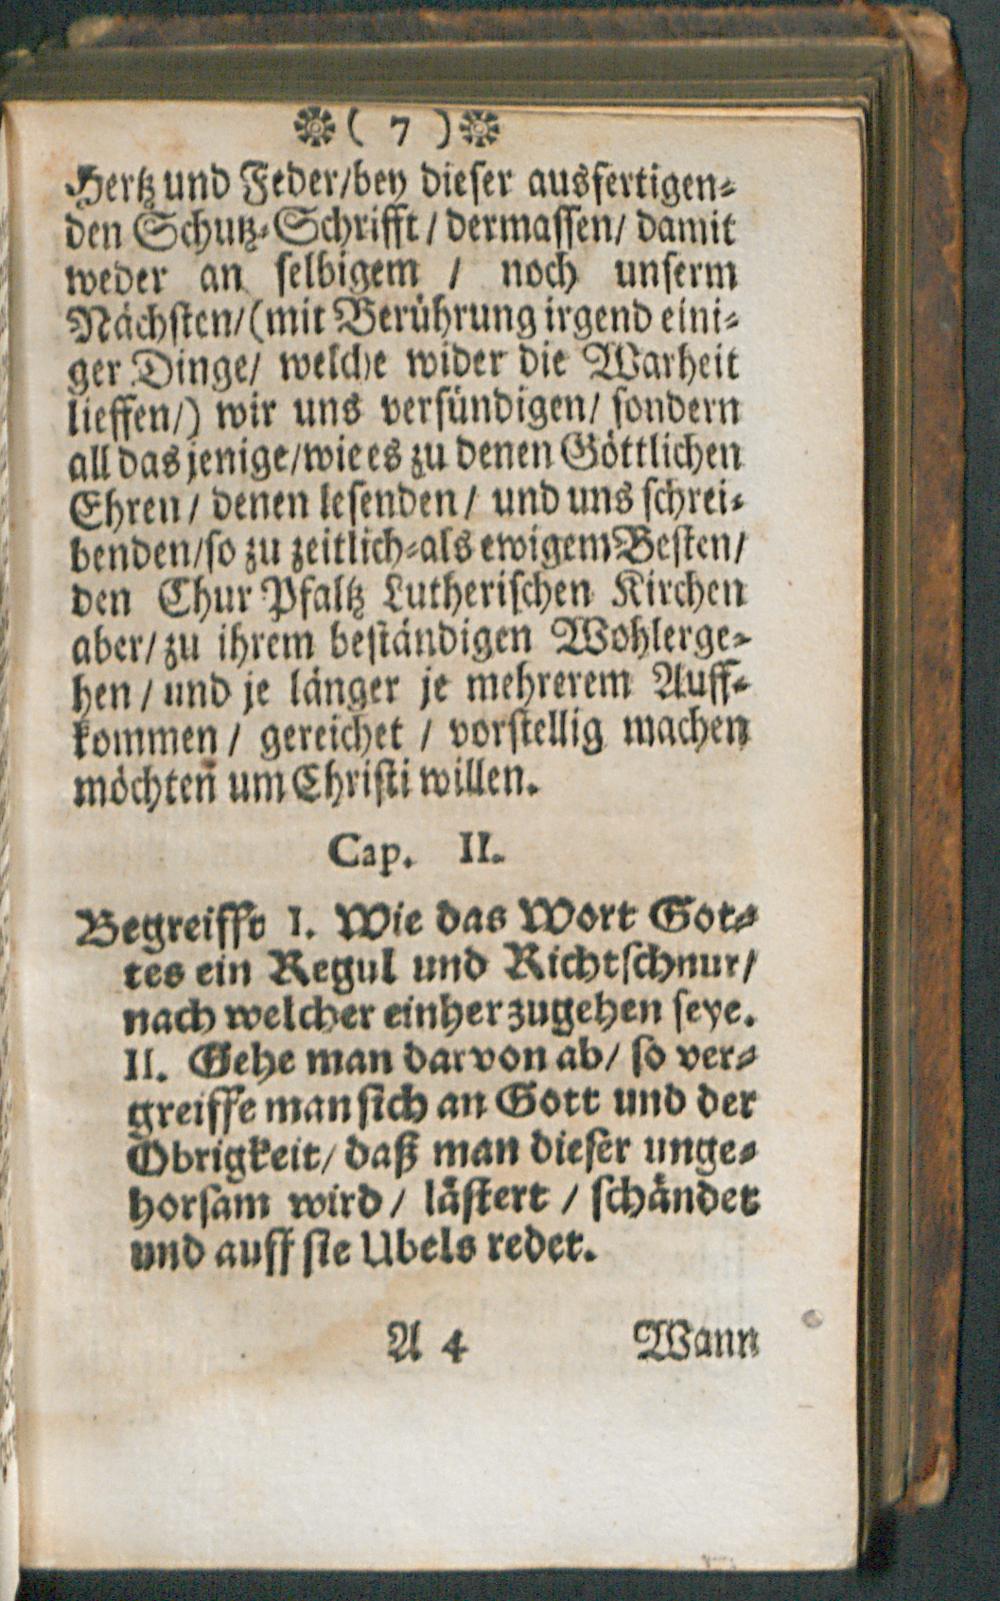 ❋( 7 )❋
Hertz und Feder/bey dieser ausfertigen-
den Schutz-Schrifft / dermassen/ damit
weder an selbigem / noch unserm
Nächsten/(mit Berührung irgend eini-
ger Dinge/ welche wider die Warheit
lieffen/) wir uns versündigen/ sondern
all dasjenige/wie es zu denen Göttlichen
Ehren / denen lesenden / und uns schrei-
benden/so zu zeitlich-als ewigem Besten/
den Chur Pfaltz Lutherischen Kirchen
aber/ zu ihrem beständigen Wohlerge-
hen / und je länger je mehrerem Auff-
kommen / gereichet / vorstellig machen
möchten um Christi willen.
Cap. II.
Begreifft I. Wie das Wort Got-
tes ein Regul und Richtschnur/
nach welcher einher zugehen seye.
II. Gehe man darvon ab/ so ver-
greiffe man sich an Gott und der
Obrigkeit/ daß man dieser unge-
horsam wird / lästert / schändet
und auff sie Ubels redet.
A 4 Wann